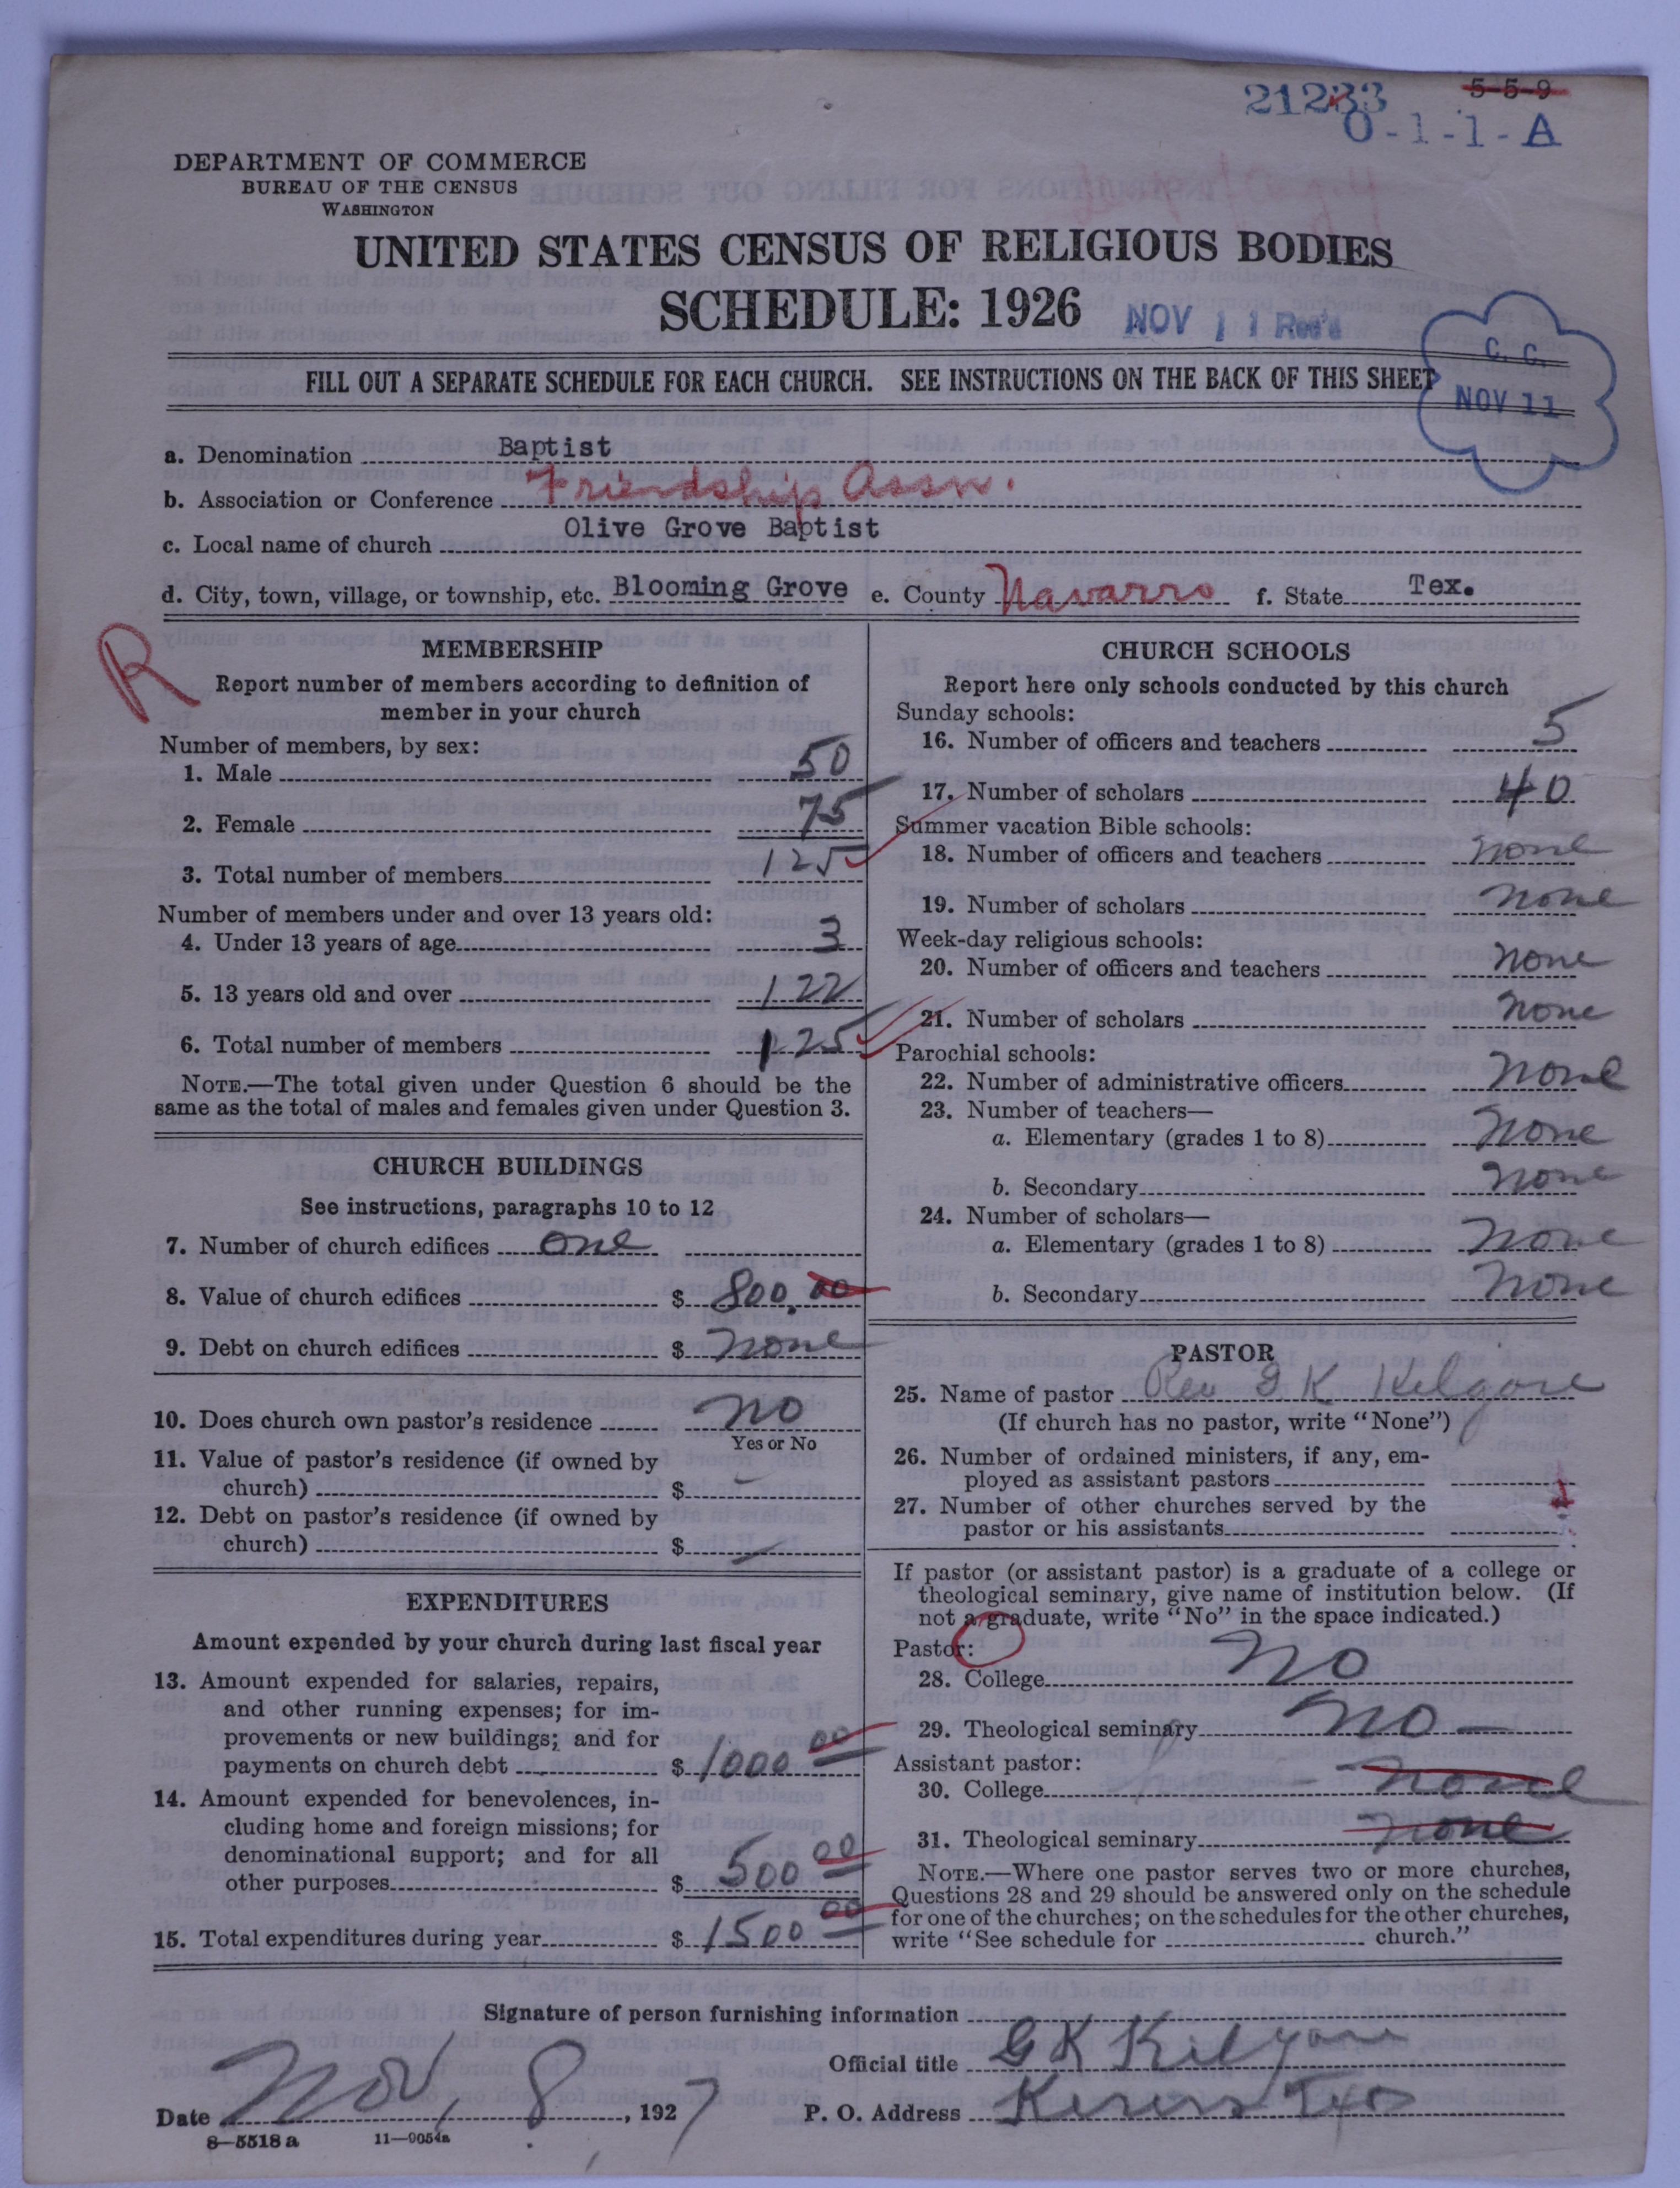 21233 5-5-9
0-1-1-A
DEPARTMENT OF COMMERCE
BUREAU OF THE CENSUS
WASHINGTON
UNITED STATES CENSUS OF RELIGIOUS BODIES
SCHEDULE: 1926
NOV 11 Rec'd
C. C.
NOV 11
FILL OUT A SEPARATE SCHEDULE FOR EACH CHURCH. SEE INSTRUCTIONS ON THE BACK OF THIS SHEET
a. Denomination Baptist
b. Association or Conference Friendship Assn.
c. Local name of church Olive Grove Baptist
d. City, town, village, or township, etc. Blooming Grove e. County Navarro f. State Tex.
R
MEMBERSHIP
Report number of members according to definition of
member in your church
Number of members, by sex:
1. Male 50
2. Female 75
3. Total number of members 125
Number of members under and over 13 years old:
4. Under 13 years of age 3
5. 13 years old and over 122
6. Total number of members 125
NOTE.—The total given under Question 6 should be the
same as the total of males and females given under Question 3.
CHURCH BUILDINGS
See instructions, paragraphs 10 to 12
7. Number of church edifices one
8. Value of church edifices $ 800.00
9. Debt on church edifices $ none
10. Does church own pastor's residence no
Yes or No
11. Value of pastor's residence (if owned by
church) $ –
12. Debt on pastor's residence (if owned by
church) $ –
EXPENDITURES
Amount expended by your church during last fiscal year
13. Amount expended for salaries, repairs,
and other running expenses; for im-
provements or new buildings; and for
payments on church debt $ 1000 00
14. Amount expended for benevolences, in-
cluding home and foreign missions; for
denominational support; and for all
other purposes $ 500 00
15. Total expenditures during year $ 1500 00
CHURCH SCHOOLS
Report here only schools conducted by this church
Sunday schools:
16. Number of officers and teachers 5
17. Number of scholars 40
Summer vacation Bible schools:
18. Number of officers and teachers none
19. Number of scholars none
Week-day religious schools:
20. Number of officers and teachers none
21. Number of scholars none
Parochial schools:
22. Number of administrative officers none
23. Number of teachers—
a. Elementary (grades 1 to 8) none
b. Secondary none
24. Number of scholars—
a. Elementary (grades 1 to 8) none
b. Secondary none
PASTOR
25. Name of pastor Rev G K Kilgore
(If church has no pastor, write "None")
26. Number of ordained ministers, if any, em-
ployed as assistant pastors
27. Number of other churches served by the
pastor or his assistants
If pastor (or assistant pastor) is a graduate of a college or
theological seminary, give name of institution below. (If
not a graduate, write "No" in the space indicated.)
Pastor:
28. College no
29. Theological seminary no –
Assistant pastor:
30. College none
31. Theological seminary none
NOTE.—Where one pastor serves two or more churches,
Questions 28 and 29 should be answered only on the schedule
for one of the churches; on the schedules for the other churches,
write "See schedule for church."
Signature of person furnishing information
Official title G K Kilgore
Date Nov, 8, 1927 P. O. Address Kerens Tex
8—5518 a 11—9054a